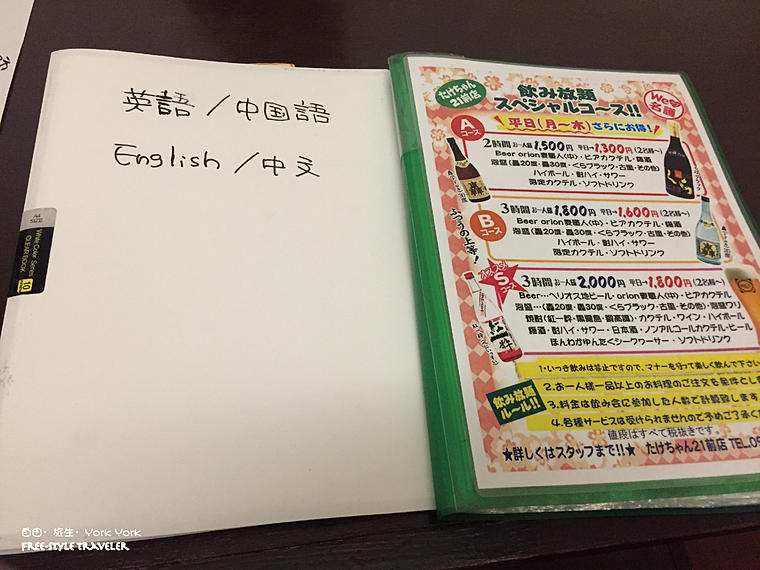 英語/中国語
English/中文
A4 SIZE
White Color Series
CLEAR BOOK
10
たけちゃん
21前店
飲み放題
スペシャルコース!!
We♥
名護
平日(月〜木)さらにお得!
Aコース
2時間 お一人様 1,500円 平日→1,300円(2名様〜)
Beer orion麦職人(中)・ビアカクテル・梅酒
泡盛(轟20度・轟30度・くらブラック・古里・その他)
ハイボール・酎ハイ・サワー
限定カクテル・ソフトドリンク
Bコース
ふつうの上等!
3時間 お一人様 1,800円 平日→1,600円(2名様〜)
Beer orion麦職人(中)・ビアカクテル・梅酒
泡盛(轟20度・轟30度・くらブラック・古里・その他)
ハイボール・酎ハイ・サワー
限定カクテル・ソフトドリンク
Sコース
3時間 お一人様 2,000円 平日→1,800円(2名様〜)
Beer…ヘリオス地ビール・orion麦職人(中)・ビアカクテル
泡盛…(轟20度・轟30度・くらブラック・古里・その他)・泡盛ワリ
焼酎(紅一粋・黒霧島・鶴高識)・カクテル・ワイン・ハイボール
梅酒・酎ハイ・サワー・日本酒・ノンアルコールカクテル・ビール
ほんわかゆんたくシークワーサー・ソフトドリンク
飲み放題
ルール!!
1・いっき飲みは禁止ですので、マナーを守って楽しく飲んで下さい
2.お一人様一品以上のお料理のご注文を条件とし
3.料金は飲み会に参加した人数で計算致します
4.各種サービスは受けられませんので予めご了承く
値段はすべて税抜きです。
★詳しくはスタッフまで!!★ たけちゃん21前店 TEL.09
自由・旅生・York York
FREE-STYLE TRAVELER